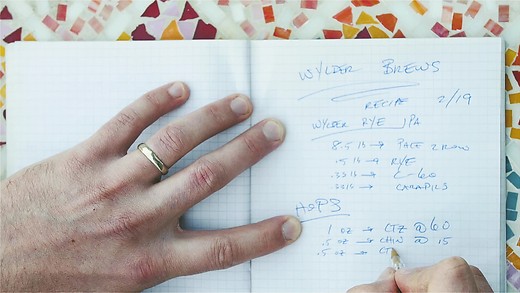 WYLDER BREWS
RECIPE 2/19
WYLDER RYE IPA
8.5 lb → PALE 2 ROW
.5 lb → RYE
C-60
→ CARAPILS
HOPS
1 OZ → CTZ @ 60
.5 OZ → CHIN @ 15
.5 OZ → CT